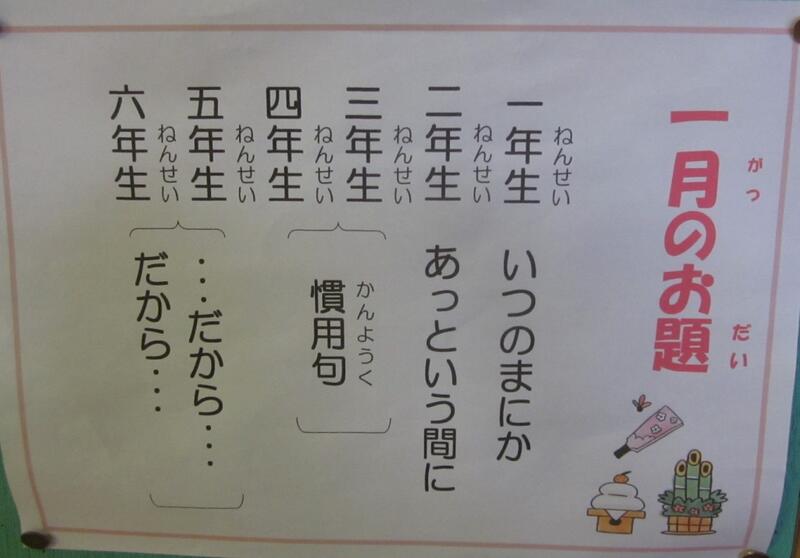 一月のお題
がつ
だい
一年生 いつのまにか
ねんせい
二年生 あっという間に
ねんせい
三年生
ねんせい
四年生
ねんせい
慣用句
かんようく
五年生
ねんせい
六年生
ねんせい
・・・だから・・・
だから・・・